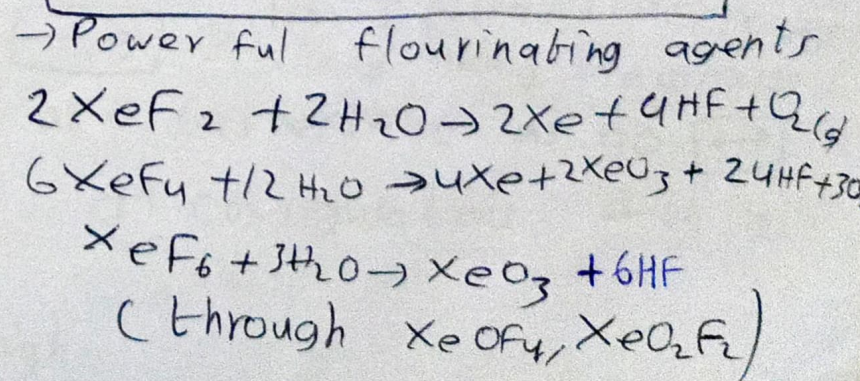 → Power ful flourinating agents
2XeF₂ + 2H₂O → 2Xe + 4HF + O₂(g)
6XeF₄ + 12H₂O → 4Xe + 2XeO₃ + 24HF + 3O
XeF₆ + 3H₂O → XeO₃ + 6HF
(through XeOF₄, XeO₂F₂)